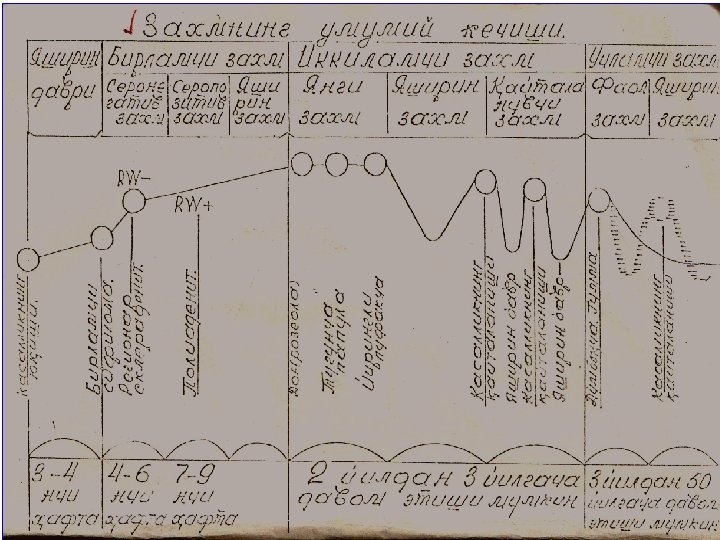 Захмнинг умумий кечиши.
Яширин даври
Бирламчи захм
Иккиламчи захм
Учламчи захм
Сероне
гатив
захм
Серопо
зитив
захм
Яши
рин
захм
Янги
захм
Яширин
захм
Кайтала
нувчи
захм
Фаол
захм
Яширин
захм
RW-
RW+
Касалликнинг
юқиши.
Бирламчи
сифилома.
Регионар
склераденит.
Полиаденит.
Тугунча
папула
Йирингли
Касалликнинг
қайталаниши
Яширин давр
Касалликнинг
қайталаниши
Яширин давр-
Гумма
Касалликнинг
қайталаниши
3-4
нчи
ҳафта
4-6
нчи
ҳафта
7-9
нчи
ҳафта
2 йилдан 3 йилгача
давом этиши мумкин
3 йилдан 50
йилгача давом
этиши мумкин